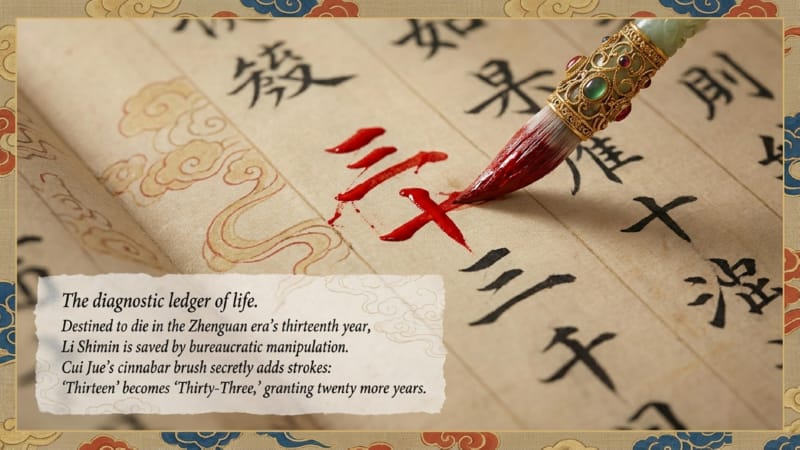 則
如果
十
三
The diagnostic ledger of life.
Destined to die in the Zhenguan era's thirteenth year,
Li Shimin is saved by bureaucratic manipulation.
Cui Jue's cinnabar brush secretly adds strokes:
'Thirteen' becomes 'Thirty-Three,' granting twenty more years.